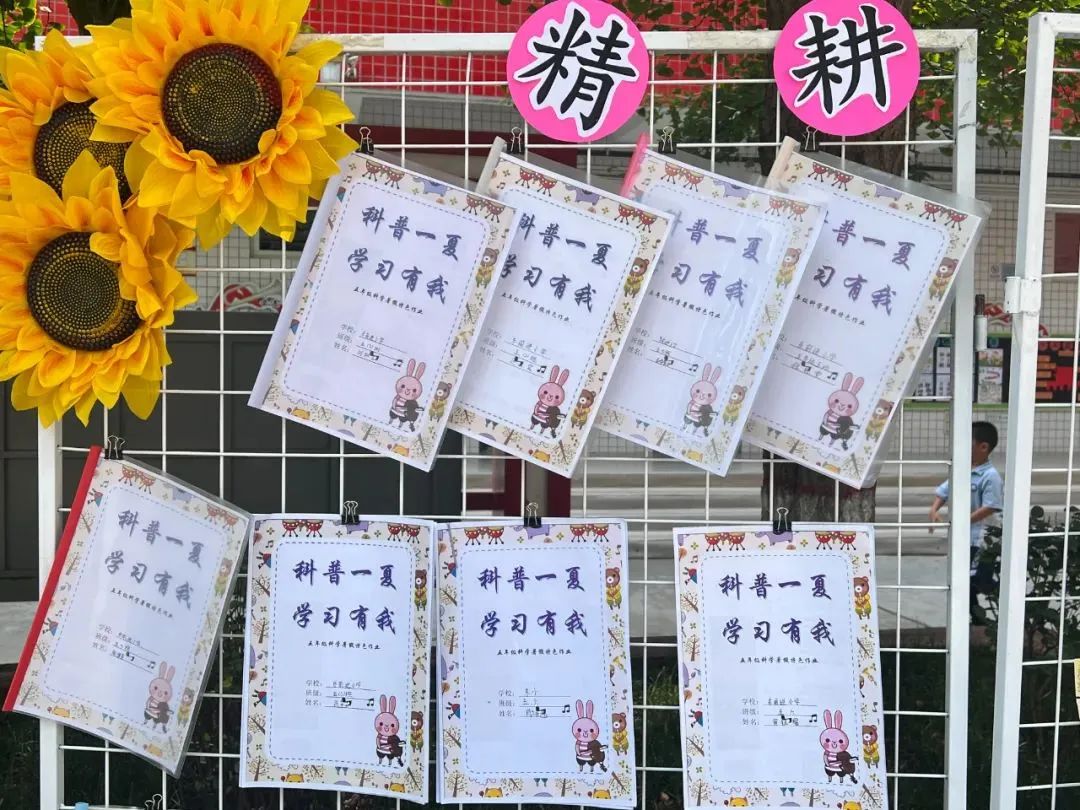 精
耕
科普一夏
学习有我
五年级科学暑假特色作业
学校:
班级:
姓名:
科普一夏
学习有我
五年级科学暑假特色作业
学校:
班级:
姓名:
科普一夏
学习有我
五年级科学暑假特色作业
学校:
班级:
姓名:
普一夏
习有我
五年级科学暑假特色作业
学校:
班级:
姓名:
科普一夏
学习有我
五年级科学暑假特色作业
学校:
班级:
姓名:
科普一夏
学习有我
五年级科学暑假特色作业
学校:
班级:
姓名:
科普一夏
学习有我
五年级科学暑假特色作业
学校:
班级:
姓名:
科普一夏
学习有我
五年级科学暑假特色作业
学校:
班级:
姓名: